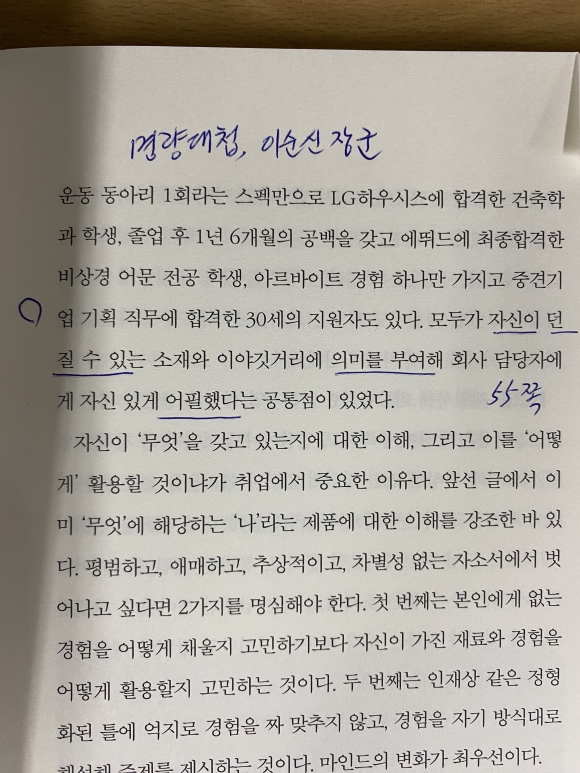 명량대첩, 이순신 장군
운동 동아리 1회라는 스펙만으로 LG하우시스에 합격한 건축학
과 학생, 졸업 후 1년 6개월의 공백을 갖고 에뛰드에 최종합격한
비상경 어문 전공 학생, 아르바이트 경험 하나만 가지고 중견기
업 기획 직무에 합격한 30세의 지원자도 있다. 모두가 자신이 던
질 수 있는 소재와 이야깃거리에 의미를 부여해 회사 담당자에
게 자신 있게 어필했다는 공통점이 있었다.
55쪽
자신이 '무엇'을 갖고 있는지에 대한 이해, 그리고 이를 '어떻
게' 활용할 것이냐가 취업에서 중요한 이유다. 앞선 글에서 이
미 '무엇'에 해당하는 '나'라는 제품에 대한 이해를 강조한 바 있
다. 평범하고, 애매하고, 추상적이고, 차별성 없는 자소서에서 벗
어나고 싶다면 2가지를 명심해야 한다. 첫 번째는 본인에게 없는
경험을 어떻게 채울지 고민하기보다 자신이 가진 재료와 경험을
어떻게 활용할지 고민하는 것이다. 두 번째는 인재상 같은 정형
화된 틀에 억지로 경험을 짜 맞추지 않고, 경험을 자기 방식대로
해석해 주제를 제시하는 것이다. 마인드의 변화가 최우선이다.